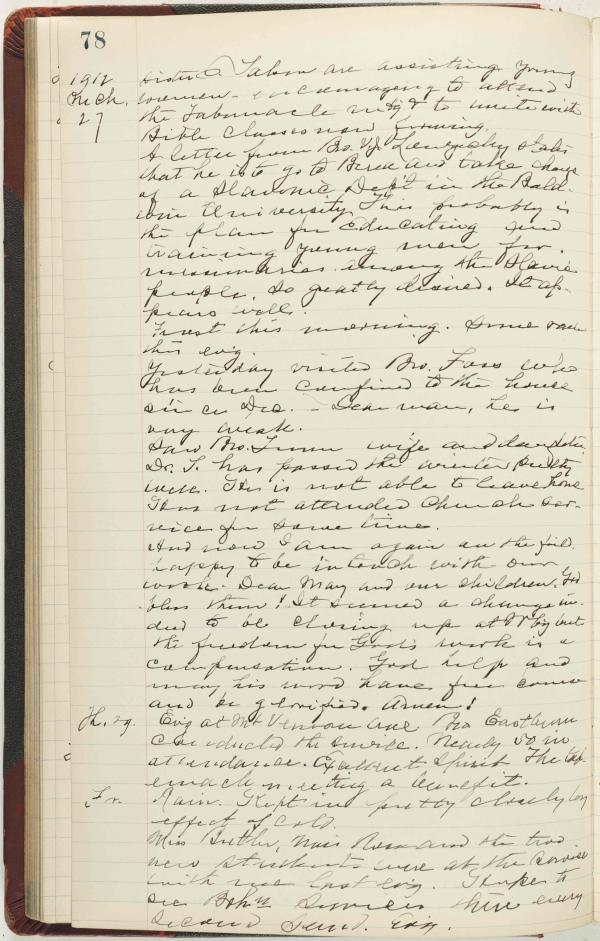 78
1912 Sister C. Tabor are assisting young
Mch. women - encouraging to attend
27 the Tabernacle mtg & to unite with
Bible Classes now forming.
A letter from Bro. states
that he is to go to Berea and take charge
of a Slavonic Dep't in the Bald-
win University. This probably is
the plan for Educating and
training young men for
missionaries among the Slavic
people, so greatly desired. It ap-
pears well.
Frost this morning. Some rain
this evg.
Yesterday visited Bro. Foss who
has been confined to the house
since Dec. - Dear man, he is
very weak.
Saw Bro. wife and daughter.
Dr. T. has passed the winter pretty
well. He is not able to leave home
Has not attended Church ser-
vice for some time.
And now I am again on the field,
happy to be in touch with our
work. Dear May and our children. God
bless them! It seemed a change in-
deed to be closing up at but
the freedom for God's work is a
compensation. God help and
may his word have free course
and be glorified. Amen!
Th. 29. Evg at Mt Vernon Ave Bro Eastburn
Conducted the service. Nearly 50 in
attendance. Excellent spirit. The tab-
ernacle meeting a benefit.
Fr. Rain. Kept in pretty closely by
effect of cold.
Miss Butler, Miss Rosa and the two
new students were at the service
with me last evg. I hope to
see Boh'n services there every
second Sund. Evg.